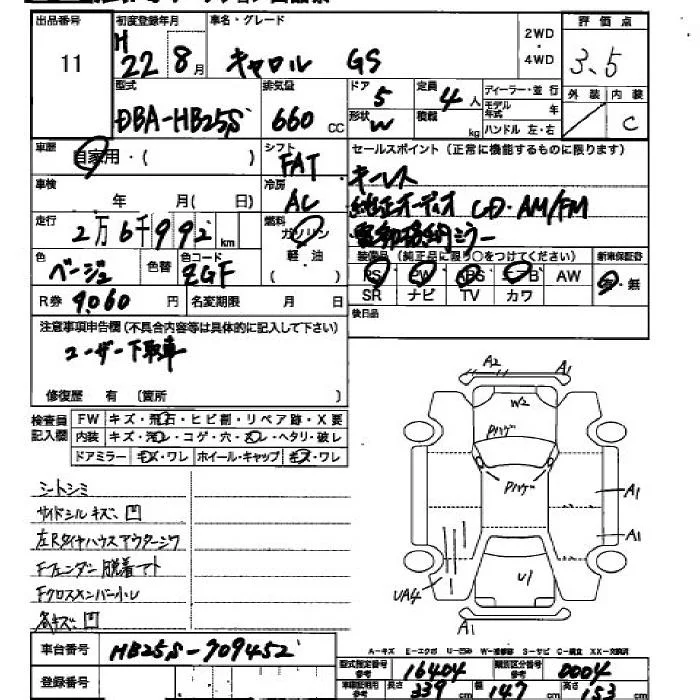 出品番号
11
初度登録年月
H 22 8月
車名・グレード
キャロル GS
2WD
・
4WD
評価点
3.5
外装 内装
C
型式
DBA-HB25S
排気量
660 CC
ドア 5
形状 W
定員 4人
積載 kg
ディーラー・並行
モデル年式 年
ハンドル 左・右
車歴
自家用・( )
シフト
FAT
セールスポイント (正常に機能するものに限ります)
キーレス
純正オーディオ CD・AM/FM
電動格納ミラー
車検
年 月( 日)
冷房
AC
走行
2万6千992 km
燃料
ガソリン
軽油
( )
色
ベージュ
色替
色コード
ZGF
装備品 (純正品に限り○をつけてください)
新車保証書
PS PW ABS エアB AW
有・無
SR ナビ TV カワ
R券 9,060 円
名変期限 月 日
後日品
注意事項申告欄(不具合内容等は具体的に記入して下さい)
ユーザー下取車
修復歴 有 〔箇所 〕
検査員記入欄
FW キズ・飛石・ヒビ割・リペア跡・X要
内装 キズ・汚レ・コゲ・穴・スレ・ヘタリ・破レ
ドアミラー キズ・ワレ ホイール・キャップ キズ・ワレ
シートシミ
サイドシルキズ、凹
左Rタイヤハウスアウターシワ
Fフェンダー脱着アト
Fクロスメンバー小レ
各キズ、凹
A2
A1
W2
Pハゲ
Pハゲ
A1
A1
UA4
U1
A1
A-キズ E-エクボ U-凹み W-補修跡 S-サビ C-腐食 XX-交換済
車台番号
HB25S-709452
登録番号
型式指定番号 参考 16404
類別区分番号 参考 0004
車検証明用 参考 長さ 339 cm 幅 147 cm 高さ 153 cm